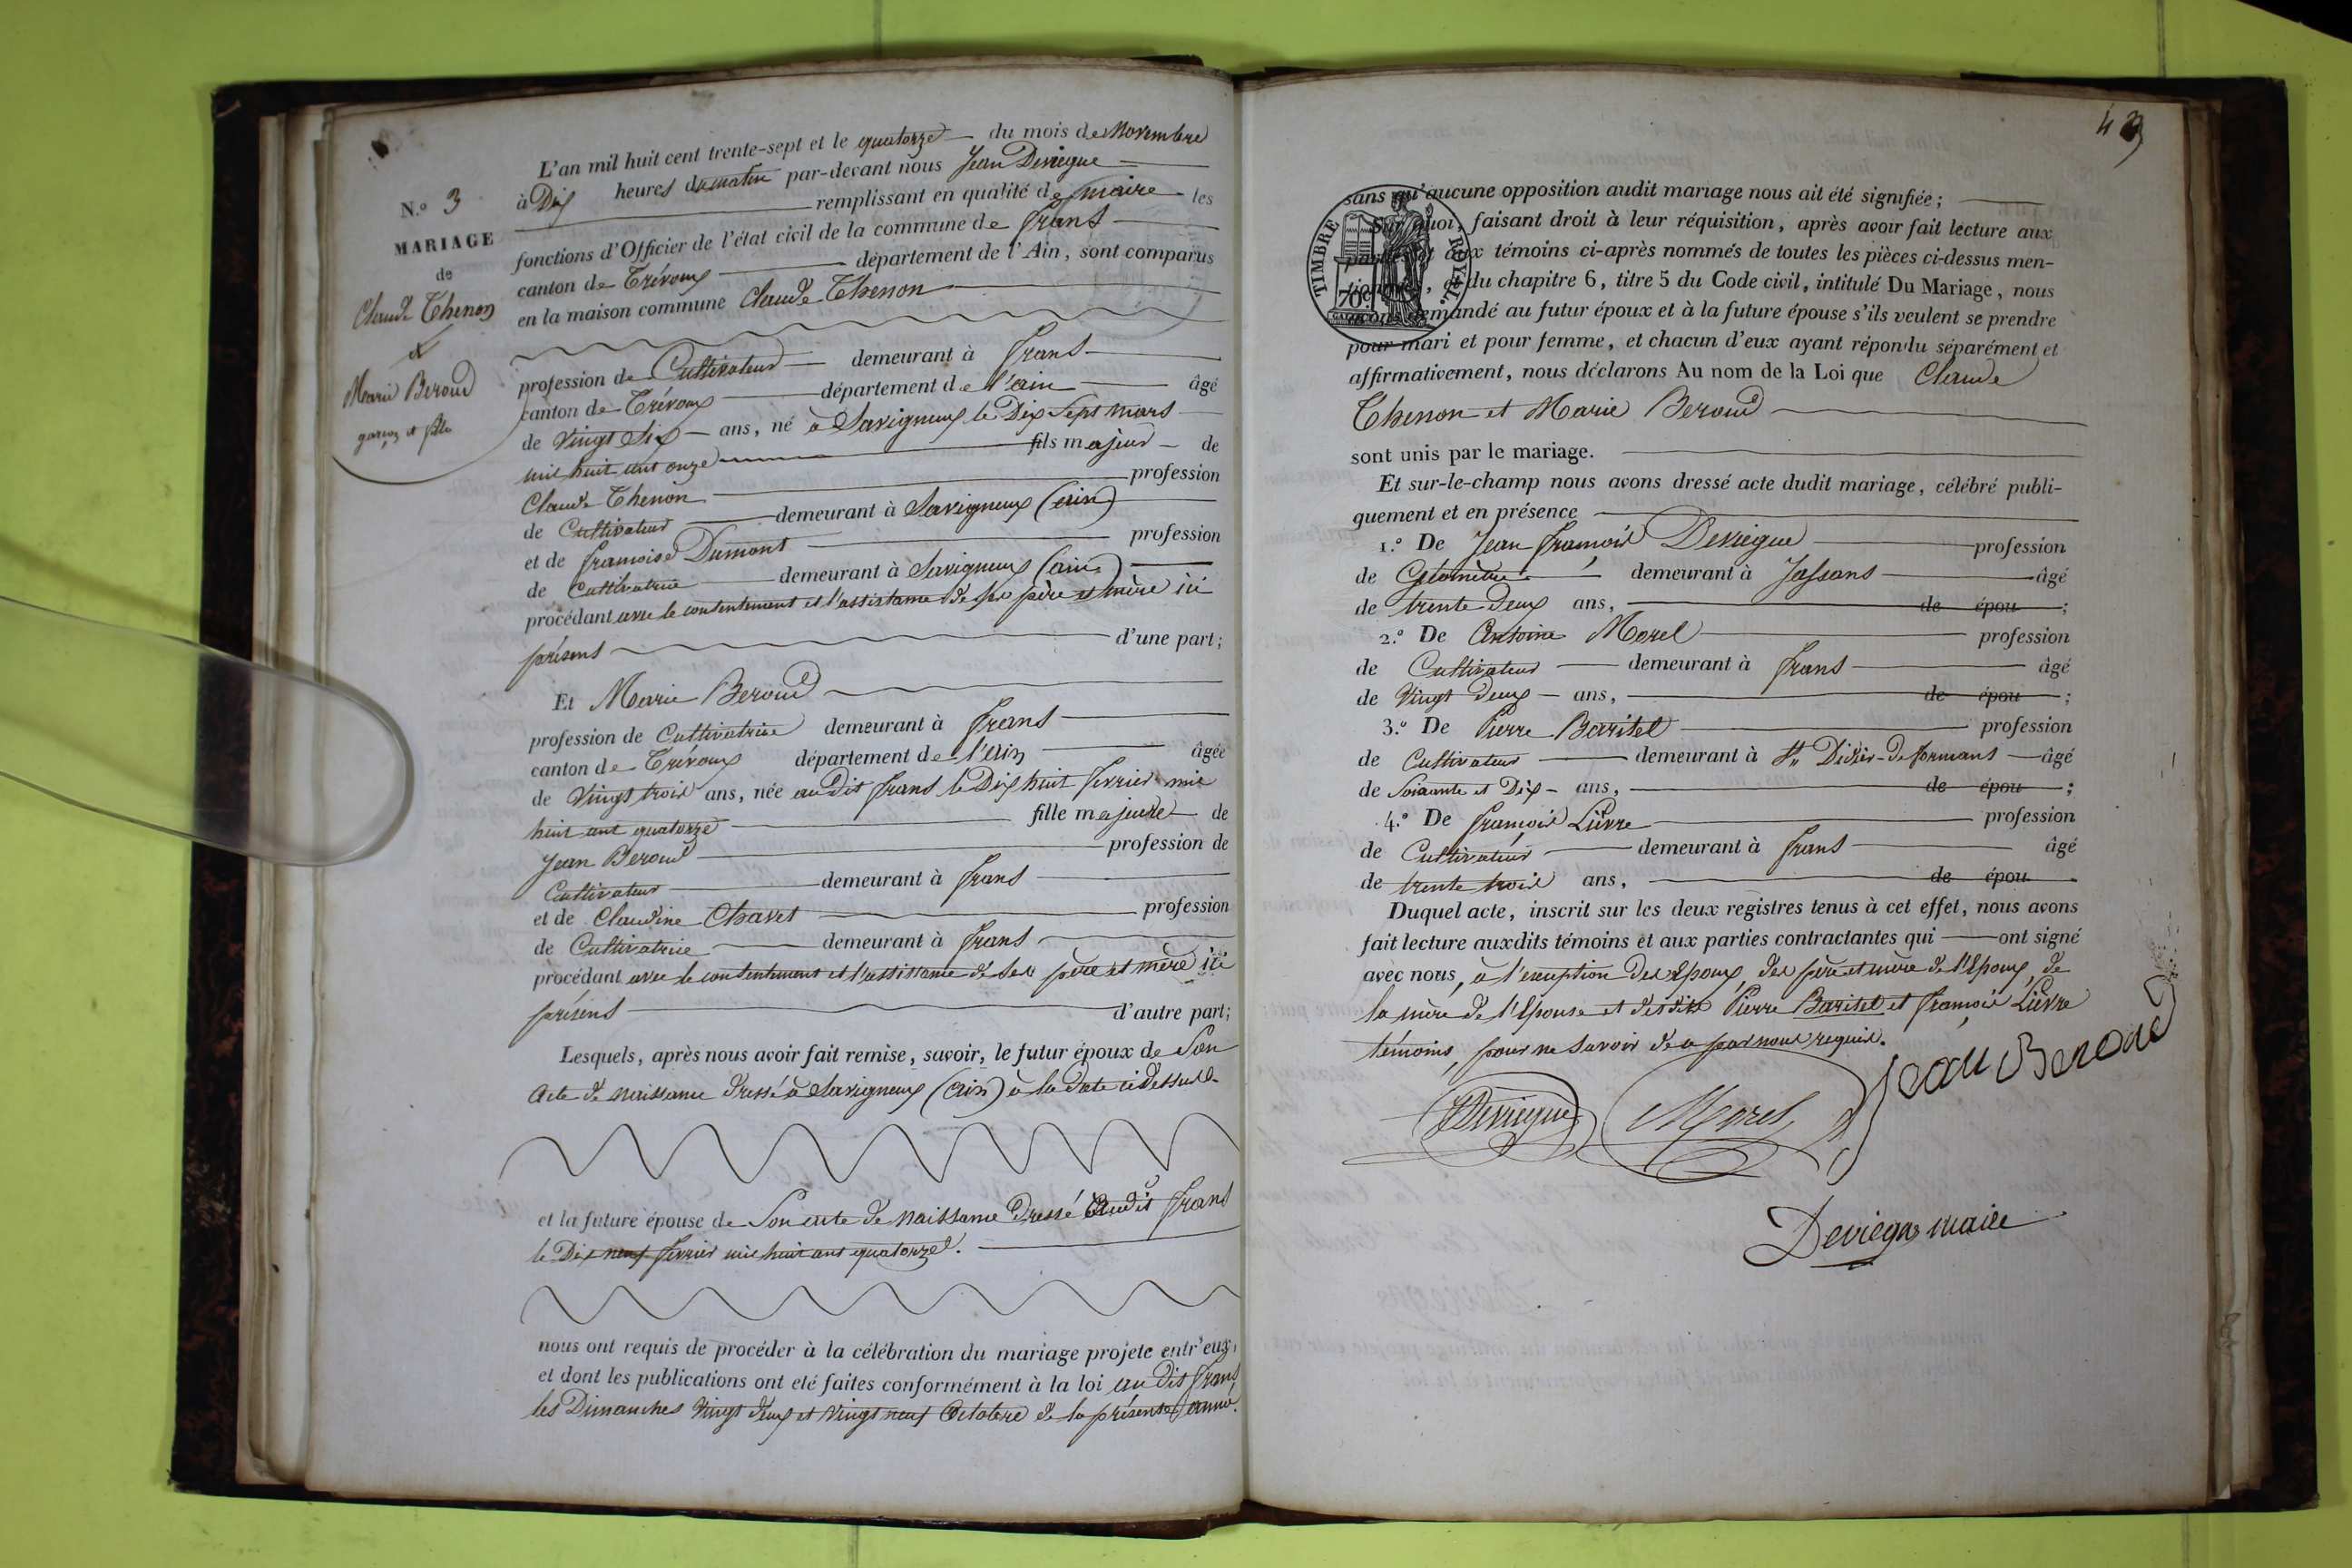 N.º 3
MARIAGE
de
Claude Thenon
et
Marie Beroud
garçon et fille
L'an mil huit cent trente-sept et le quatorze du mois de Novembre
à Dix heures du matin par-devant nous Jean Deviegue
remplissant en qualité de maire les
fonctions d'Officier de l'état civil de la commune de frans
canton de Trévoux département de l'Ain, sont comparus
en la maison commune Claude Thenon
profession de Cultivateur demeurant à frans
canton de Trévoux département de l'ain âgé
de Vingt Six ans, né à Savigneux le Dix Sept mars
mil huit cent onze fils majeur de
Claude Thenon profession
de Cultivateur demeurant à Savigneux (ain)
et de françoise Dumont profession
de Cultivatrice demeurant à Savigneux (ain)
procédant avec le contentement et l'assistance de ses père et mère ici
présens d'une part;
Et Marie Beroud
profession de Cultivatrice demeurant à frans
canton de Trévoux département de l'ain âgée
de Vingt trois ans, née audit frans le Dix huit fevrier mil
huit cent quatorze fille majeure de
Jean Beroud profession de
Cultivateur demeurant à frans
et de Claudine Chavet profession
de Cultivatrice demeurant à frans
procédant avec le contentement et l'assistance de ses père et mère ici
présens d'autre part;
Lesquels, après nous avoir fait remise, savoir, le futur époux de Son
Acte de naissance dressé à Savigneux (ain) à la date ci dessus.
et la future épouse de Son acte de naissance dressé audit frans
le Dix neuf fevrier mil huit cent quatorze.
nous ont requis de procéder à la célébration du mariage projeté entr'eux,
et dont les publications ont été faites conformément à la loi au dit frans
les Dimanches Vingt deux et Vingt neuf Octobre de la présente année.
43
TIMBRE ROYAL.
70c
sans qu'aucune opposition audit mariage nous ait été signifiée;
Sur quoi, faisant droit à leur réquisition, après avoir fait lecture aux
parties et aux témoins ci-après nommés de toutes les pièces ci-dessus men-
tionnées, et du chapitre 6, titre 5 du Code civil, intitulé Du Mariage, nous
avons demandé au futur époux et à la future épouse s'ils veulent se prendre
pour mari et pour femme, et chacun d'eux ayant répondu séparément et
affirmativement, nous déclarons Au nom de la Loi que Claude
Thenon et Marie Beroud
sont unis par le mariage.
Et sur-le-champ nous avons dressé acte dudit mariage, célébré publi-
quement et en présence
1.º De Jean françois Deviegue profession
de Géomètre demeurant à Jassans âgé
de trente Deux ans, de épou ;
2.º De Antoine Morel profession
de Cultivateur demeurant à frans âgé
de Vingt Deux ans, de épou ;
3.º De Pierre Baritel profession
de Cultivateur demeurant à St Didier-de formans âgé
de Soixante et Dix ans, de épou ;
4.º De françois Lièvre profession
de Cultivateur demeurant à frans âgé
de trente trois ans, de épou .
Duquel acte, inscrit sur les deux registres tenus à cet effet, nous avons
fait lecture auxdits témoins et aux parties contractantes qui ont signé
avec nous, à l'exception des Epoux, des père et mère de l'Epoux, de
la mère de l'Epouse et desdits Pierre Baritel et françois Lièvre
témoins, pour ne savoir de ce par nous requis.
Jean Beroud
JDeviegue Morel
Deviegue maire